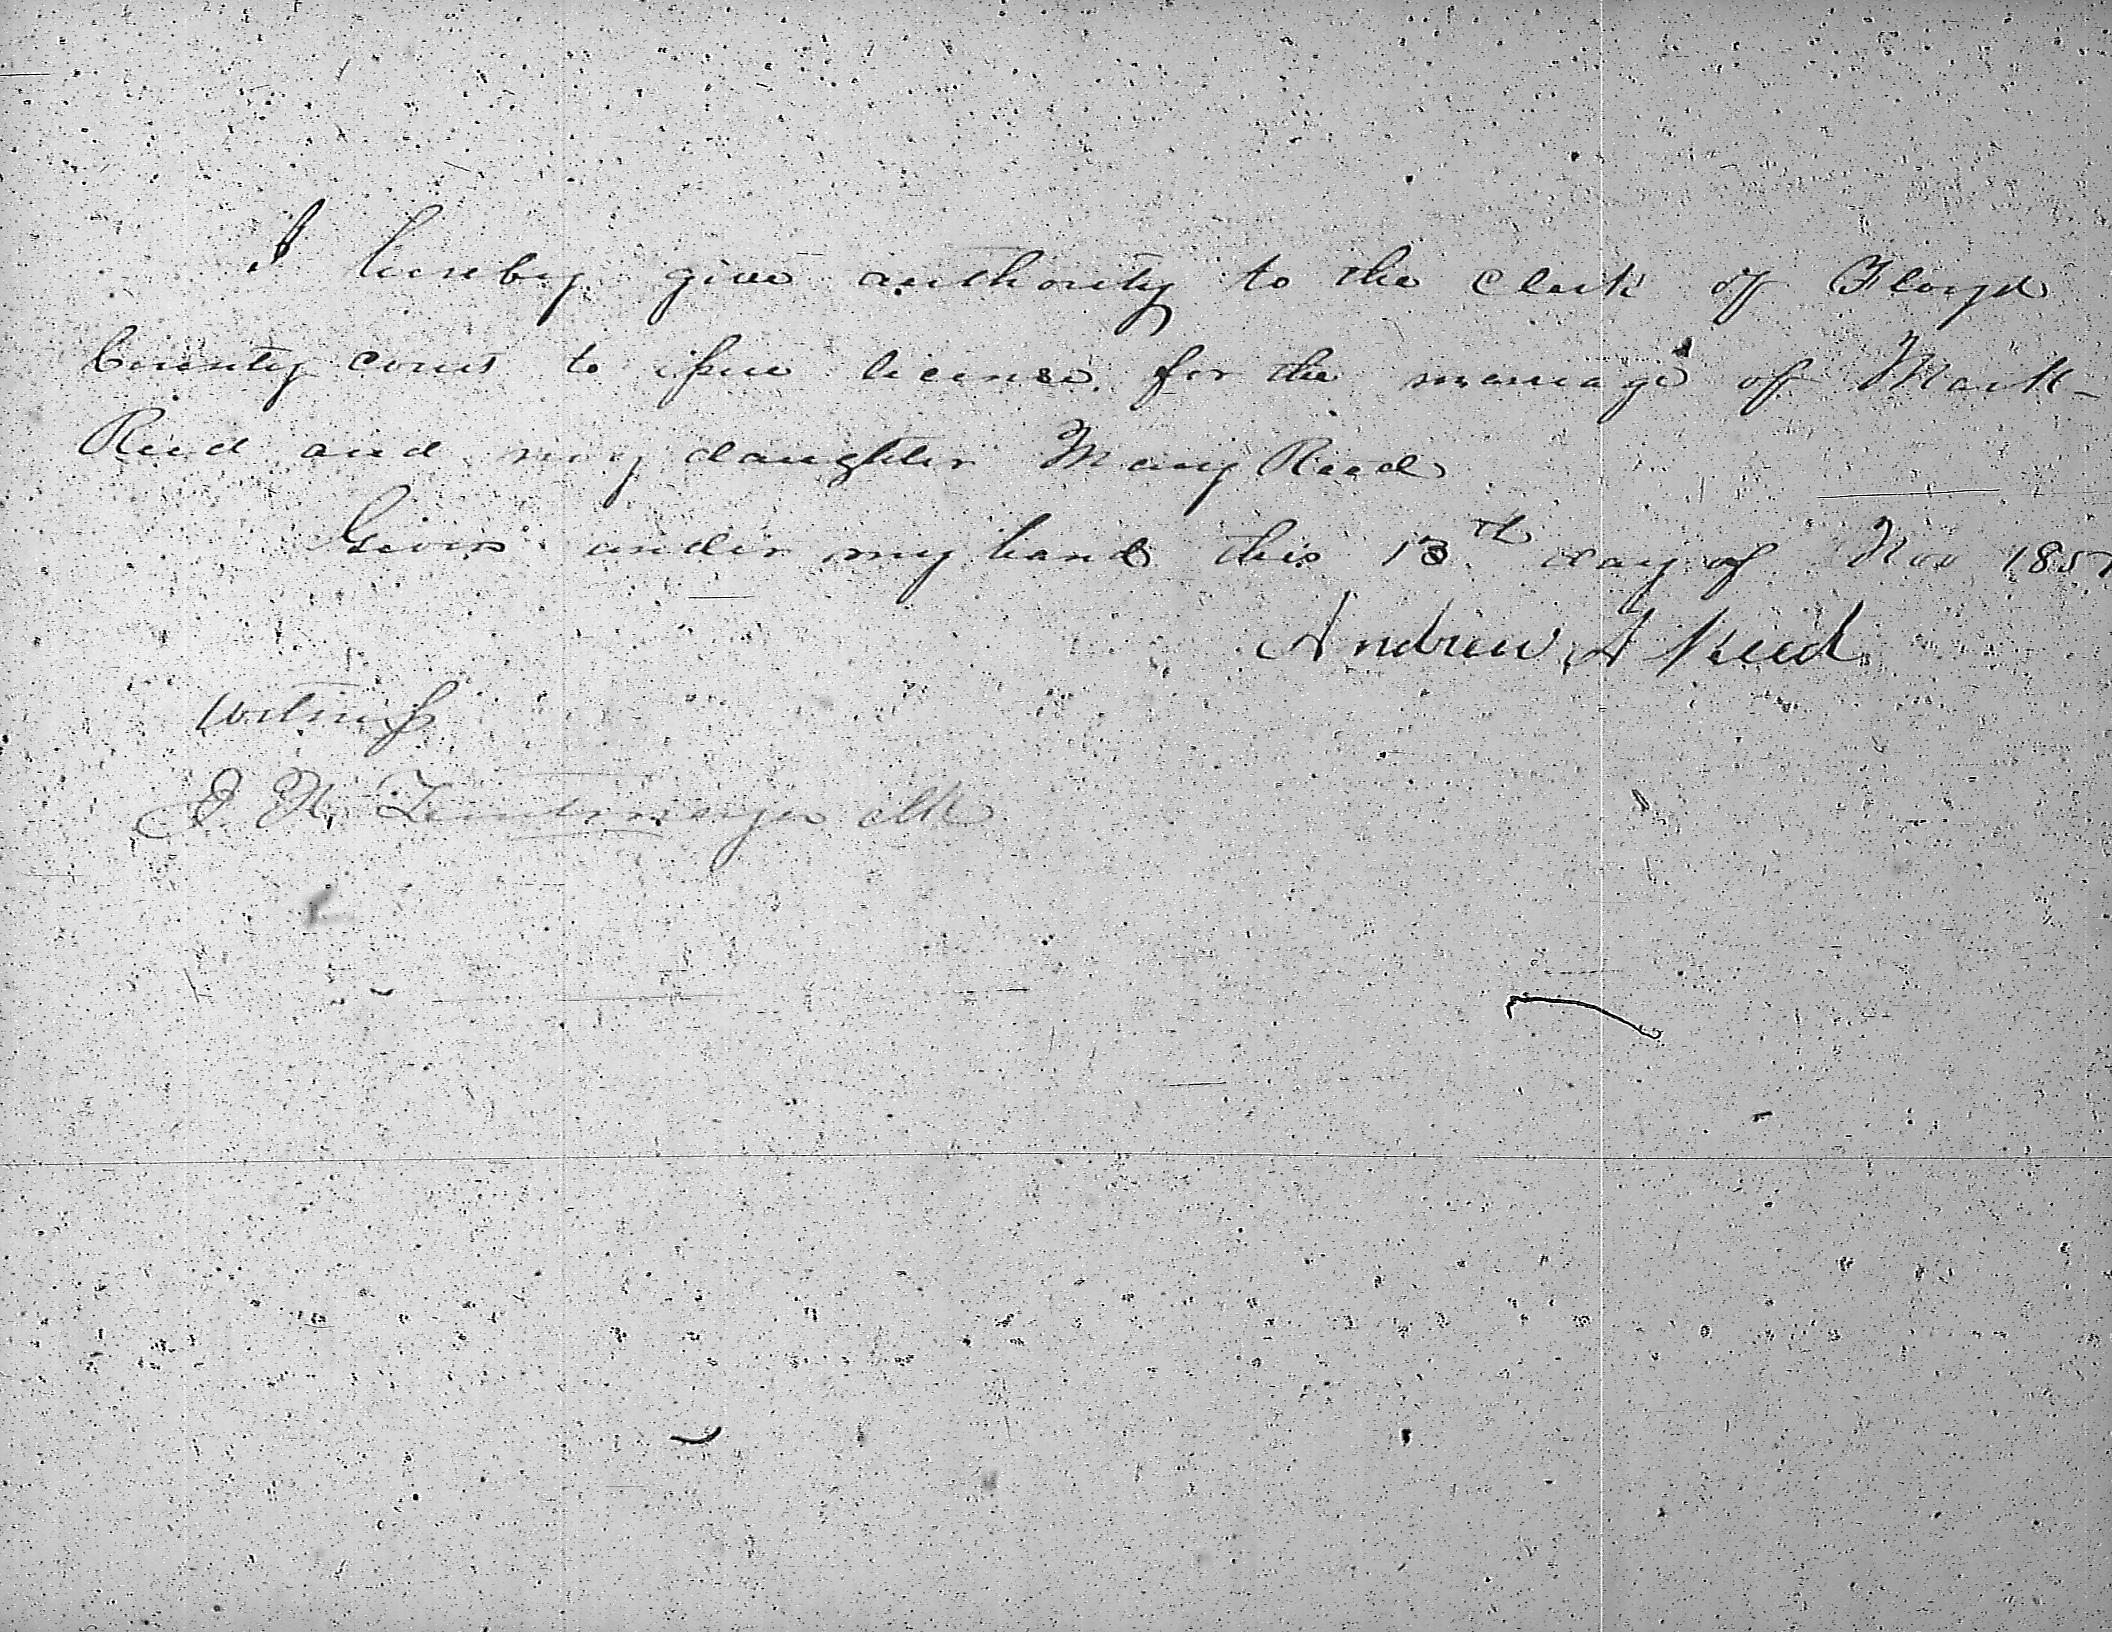 I hereby give authority to the Clerk of Floyd
County court to issue license for the marriage of Mark
Reed and my daughter Mary Reed
Given under my hand this 13th day of Nov 1857
Andrew A Reed
Witness
J. H.